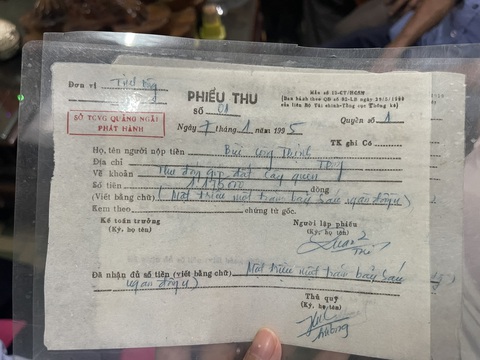 Đơn vị
PHIẾU THU
Mẫu số 15-CT/HCSN
(Ban hành theo QĐ số
của liên Bộ Tài chính-Tổng cục Thống kê)
Số 01
Quyển số 1
SỞ TCVG QUẢNG NGÃI
PHÁT HÀNH
Ngày 7 tháng 1 năm 1995
TK ghi Có
Họ, tên người nộp tiền Bùi Công Thinh
Địa chỉ
Về khoản Thu đóng góp đất cây quen
Số tiền 1.176.000 đồng
(Viết bằng chữ) (Một triệu một trăm bảy sáu ngàn đồng)
Kèm theo chứng từ gốc.
Kế toán trưởng
(Ký, họ tên)
Người lập phiếu
(Ký, họ tên)
Đã nhận đủ số tiền (viết bằng chữ) Một triệu một trăm bảy sáu
ngàn đồng)
Thủ quỹ
(Ký, họ tên)